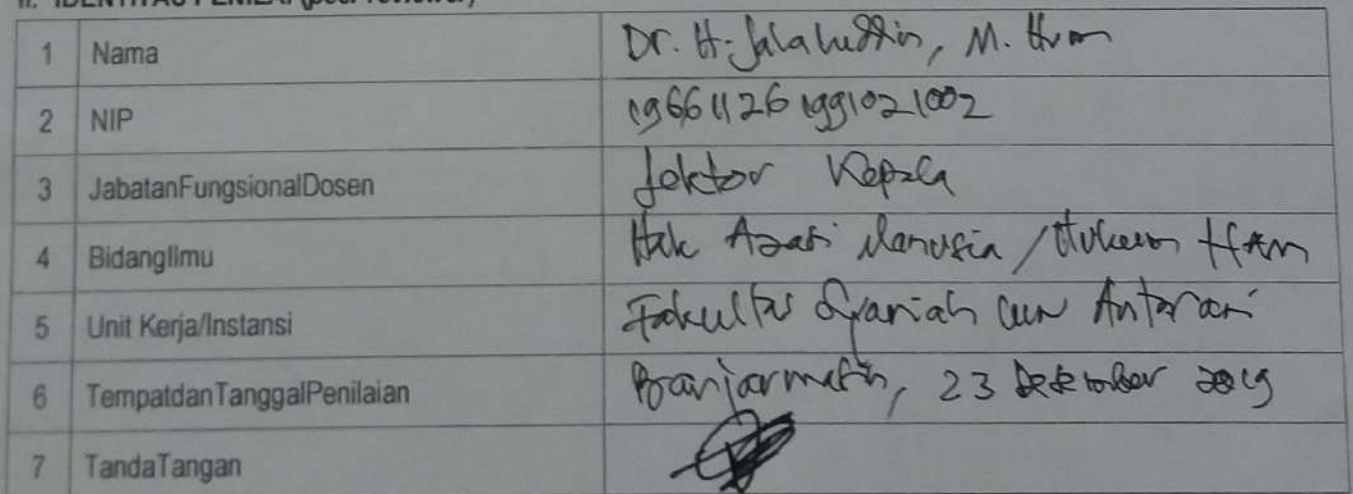 II. IDENTITAS PENILAI (peer reviewer)
1 Nama Dr. H. Jalaluddin, M. Hum
2 NIP 196611261991021002
3 JabatanFungsionalDosen Lektor Kepala
4 BidangIlmu Hak Azasi Manusia / Hukum HAM
5 Unit Kerja/Instansi Fakultas Syariah UIN Antasari
6 TempatdanTanggalPenilaian Banjarmasin, 23 Desember 2019
7 TandaTangan